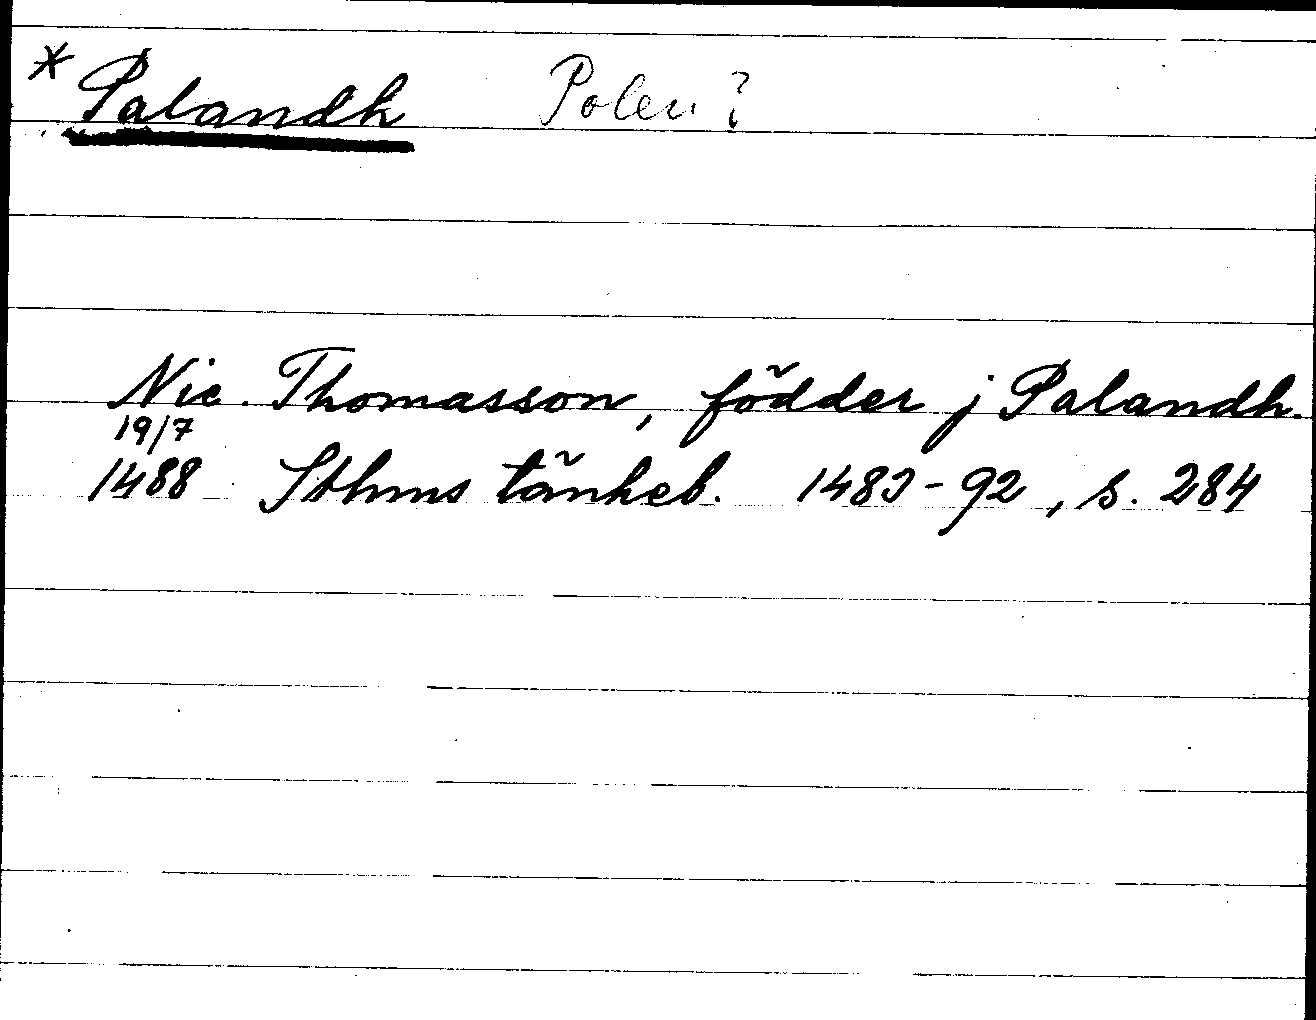 * Palandh Polen?
Nic. Thomasson, födder j Palandh.
19/7
1488 Sthms tänkeb. 1483-92, s. 284